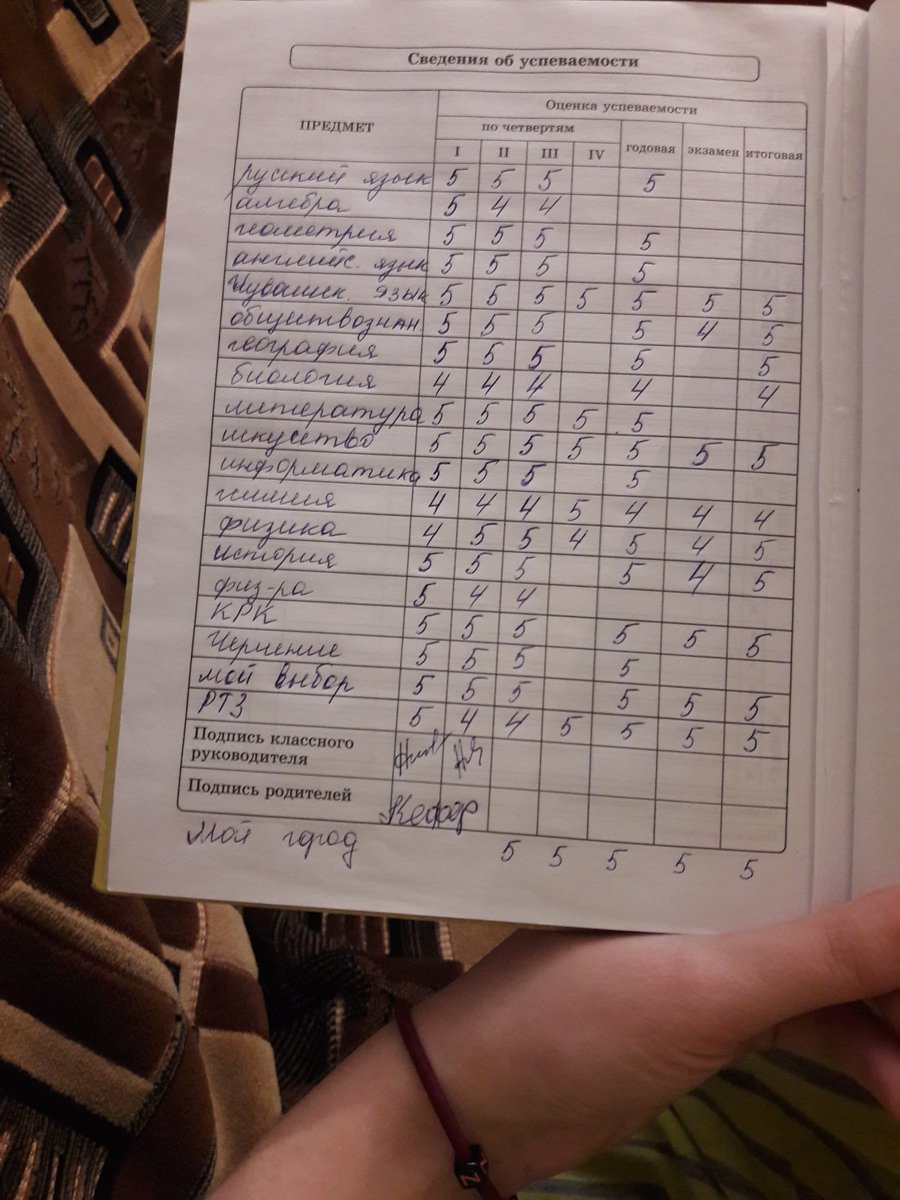 Сведения об успеваемости
ПРЕДМЕТ
Оценка успеваемости
по четвертям
I II III IV годовая экзамен итоговая
русский язык 5 5 5 5
алгебра 5 4 4
геометрия 5 5 5 5
английс. язык 5 5 5 5
Чувашск. язык 5 5 5 5 5 5 5
обществознан. 5 5 5 5 4 5
география 5 5 5 5 5
биология 4 4 4 4 4
литература 5 5 5 5 5
искуство 5 5 5 5 5 5 5
информатика 5 5 5 5
химия 4 4 4 5 4 4 4
физика 4 5 5 4 5 4 5
история 5 5 5 5 4 5
физ-ра 5 4 4
КРК 5 5 5 5 5 5
Черчение 5 5 5 5
мой выбор 5 5 5 5 5 5
РТЗ 5 4 4 5 5 5 5
Подпись классного
руководителя
Подпись родителей
Мой город 5 5 5 5 5